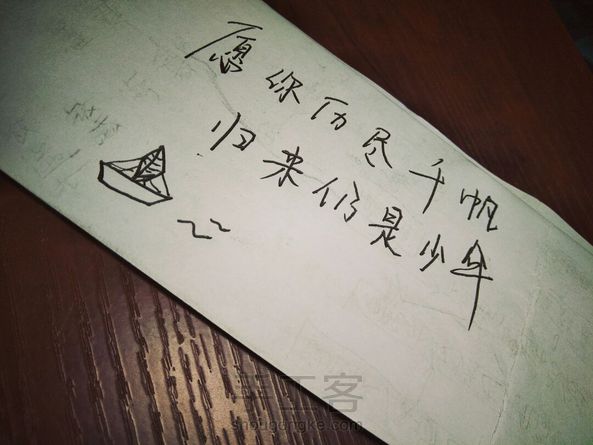 愿你历尽千帆
归来仍是少年
手工客
shougongke.com